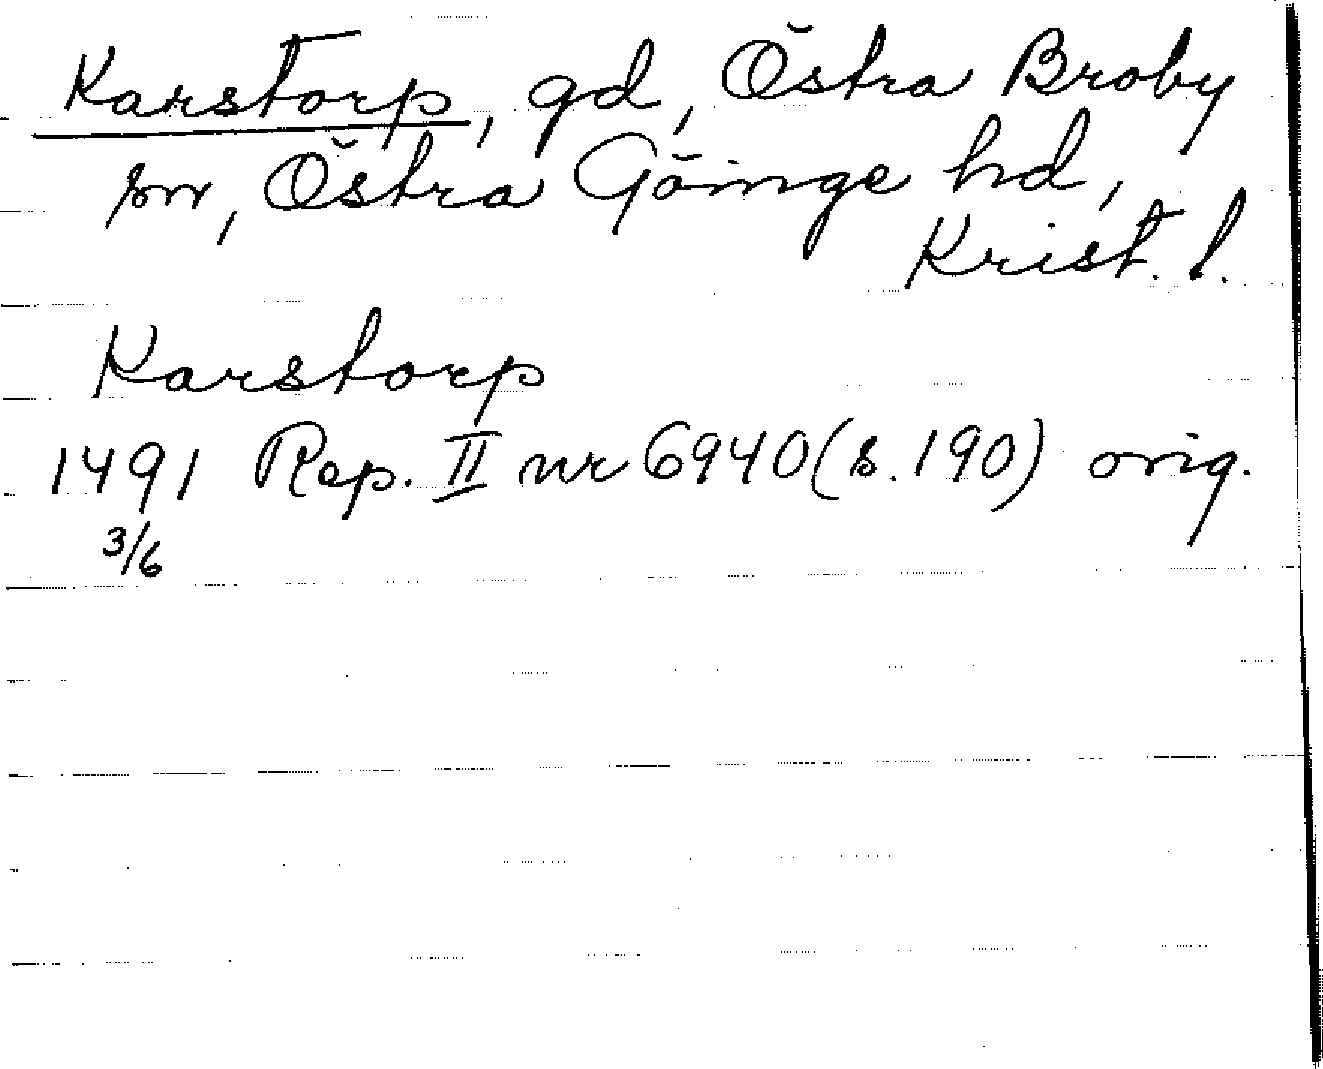 Karstorp, gd, Östra Broby
sn, Östra Göinge hd,
Krist. l.
Karstorp
1491 Rep. II nr 6940 (s. 190) orig.
3/6